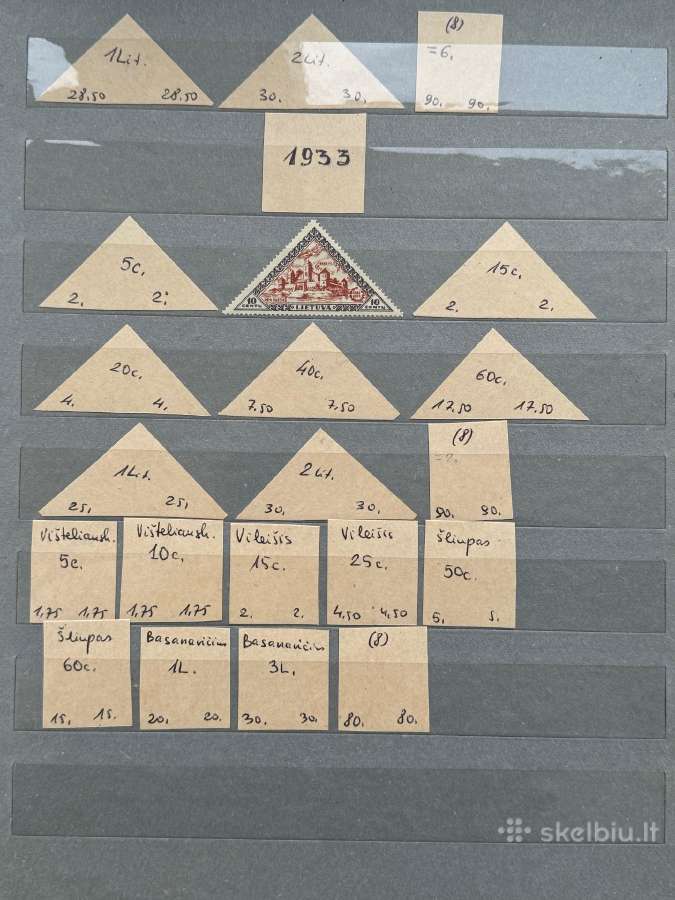 1Lit.
28,50 28,50
2Lit.
30. 30.
(8)
=6.
90. 90.
1933
5c.
2. 2.
10 CENTŲ LIETUVA 10 CENTŲ
15c.
2. 2.
20c.
4. 4.
40c.
7.50 7.50
60c.
17.50 17.50
1Lit.
25, 25,
2Lit.
30. 30.
(8)
90. 90.
Višteliaush.
5c.
1,75 1,75
Višteliaush.
10c.
1,75 1,75
Vileišis
15c.
2. 2.
Vileišis
25c.
4,50 4,50
Šliupas
50c.
5, 5.
Šliupas
60c.
15, 15.
Basanavičius
1L.
20. 20.
Basanavičius
3L.
30. 30.
(8)
80. 80.
skelbiu.lt